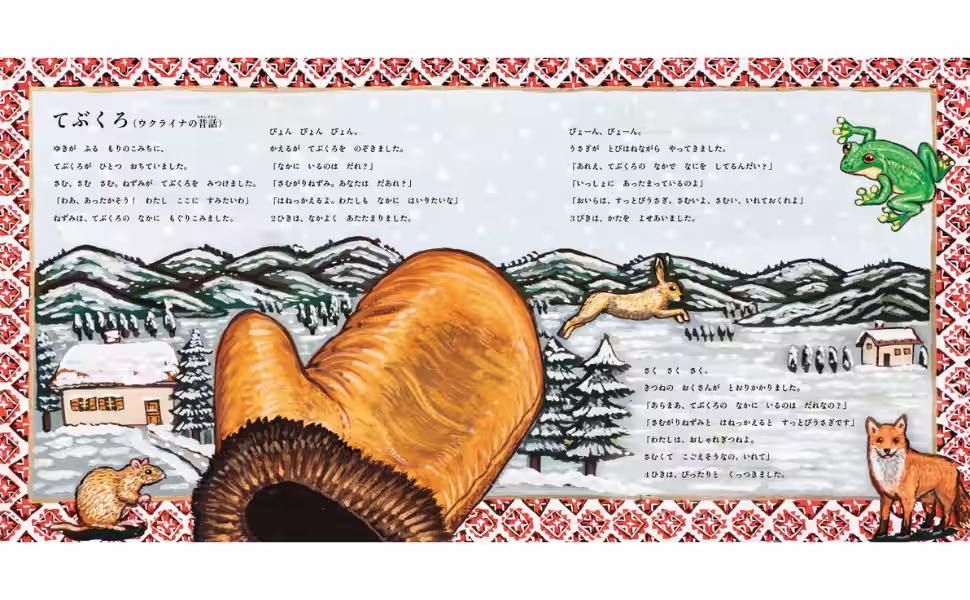 てぶくろ(ウクライナの昔話)
ゆきが ふる もりのこみちに、
てぶくろが ひとつ おちていました。
さむ、さむ さむ。ねずみが てぶくろを みつけました。
「わあ、あったかそう! わたし ここに すみたいわ」
ねずみは、てぶくろの なかに もぐりこみました。
ぴょん ぴょん ぴょん。
かえるが てぶくろを のぞきました。
「なかに いるのは だれ?」
「さむがりねずみ。あなたは だあれ?」
「はねっかえるよ。わたしも なかに はいりたいな」
2ひきは、なかよく あたたまりました。
ぴょーん、ぴょーん。
うさぎが とびはねながら やってきました。
「あれえ、てぶくろの なかで なにを してるんだい?」
「いっしょに あったまっているのよ」
「おいらは、すっとびうさぎ。さむいよ、さむい、いれておくれよ」
3びきは、かたを よせあいました。
さく さく さく。
きつねの おくさんが とおりかかりました。
「あらまあ、てぶくろの なかに いるのは だれなの?」
「さむがりねずみと はねっかえると すっとびうさぎです」
「わたしは、おしゃれぎつねよ。
さむくて こごえそうなの、いれて」
4ひきは、ぴったりと くっつきました。